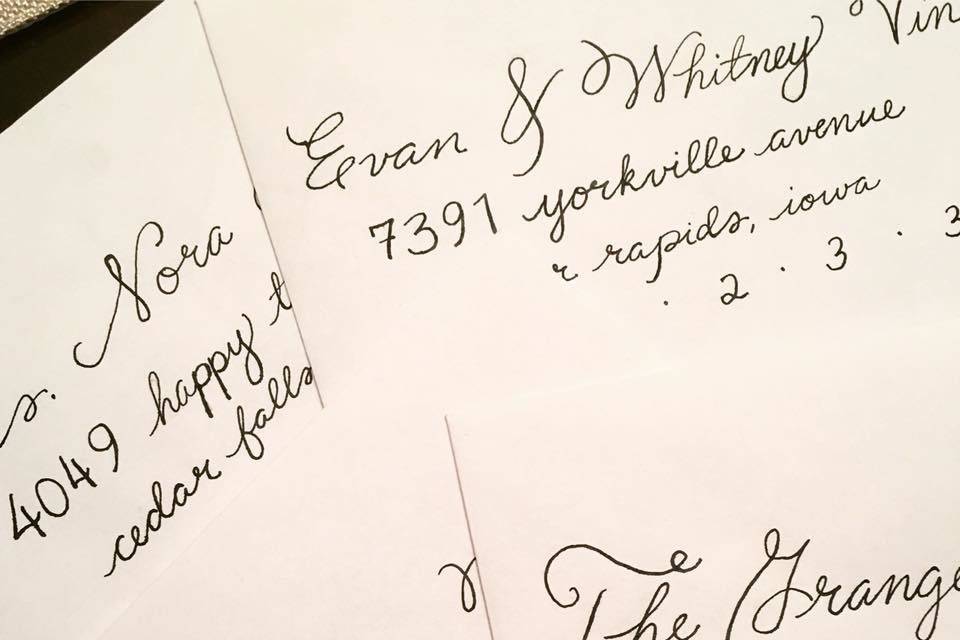 Evan & Whitney Vin
7391 yorkville avenue
r rapids, iowa
· 2 · 3 · 3
s. Nora
4049 happy t
cedar falls
The Grange